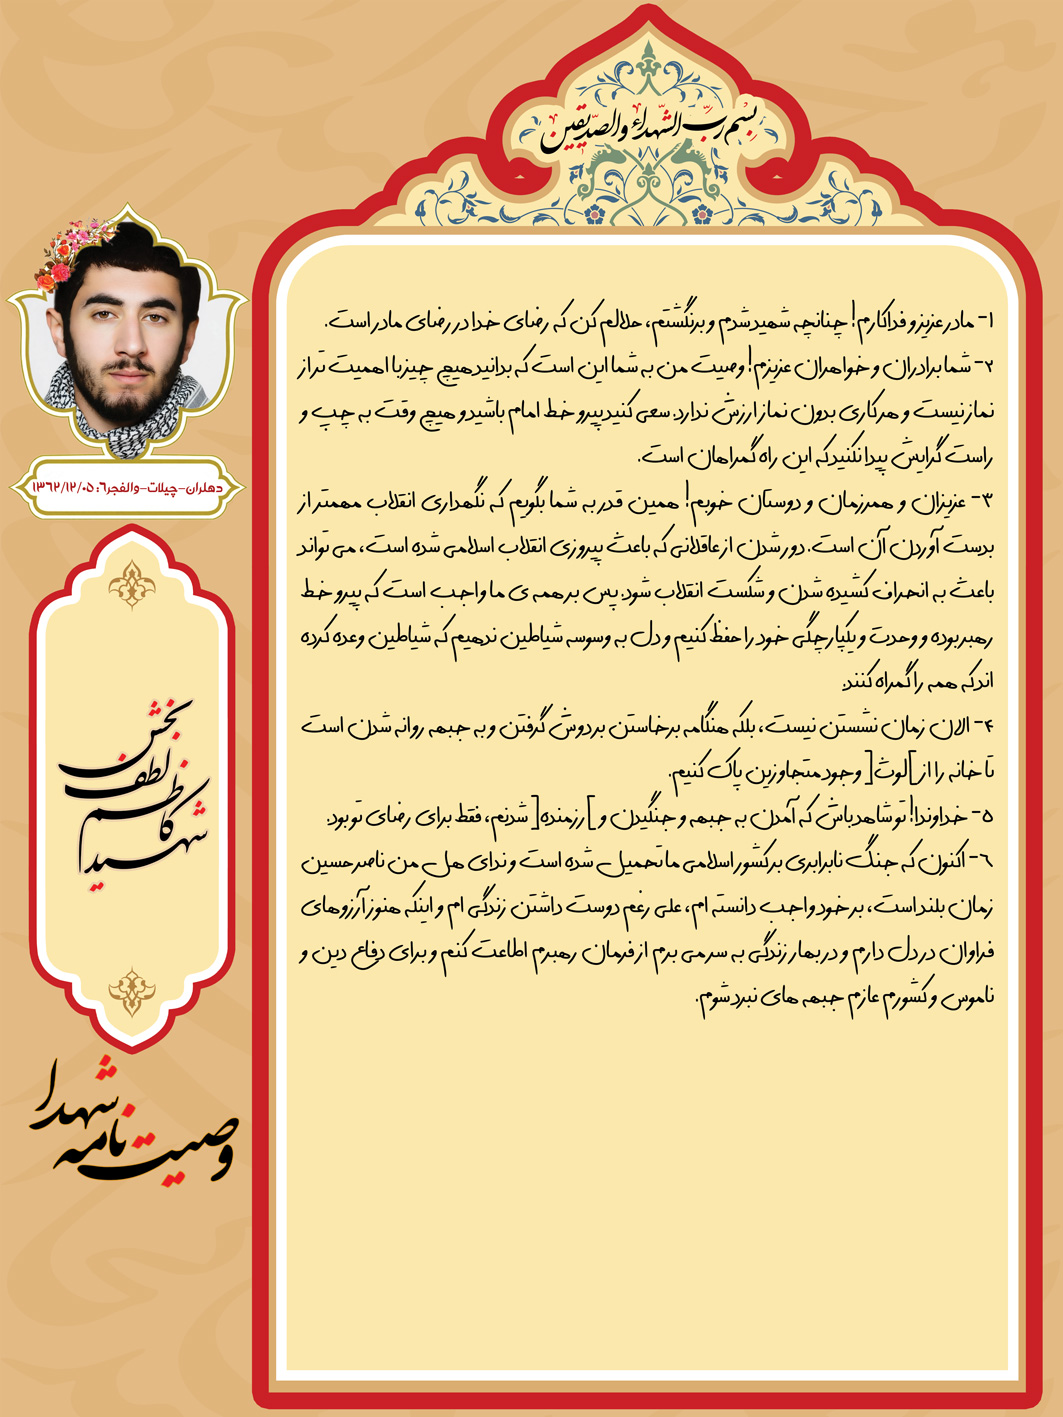 بسم رب الشهداء والصدیقین
۱- مادر عزیز و فداکارم! چنانچه شهید شدم و برنگشتم، حلالم کن که رضای خدا در رضای مادر است.
۲- شما برادران و خواهران عزیزم! وصیت من به شما این است که بدانید هیچ چیز با اهمیت تر از
نماز نیست و هر کاری بدون نماز ارزش ندارد. سعی کنید پیرو خط امام باشید و هیچ وقت به چپ و
راست گرایش پیدا نکنید که این راه گمراهان است.
۳- عزیزان و همرزمان و دوستان خوبم! همین قدر به شما بگویم که نگهداری انقلاب مهمتر از
بدست آوردن آن است. دور شدن از عاقلانی که باعث پیروزی انقلاب اسلامی شده است، می تواند
باعث به انحراف کشیده شدن و شکست انقلاب شود. پس بر همه ی ما واجب است که پیرو خط
رهبر بوده و وحدت و یکپارچگی خود را حفظ کنیم و دل به وسوسه شیاطین ندهیم که شیاطین وعده کرده
اند که همه را گمراه کنند.
۴- الان زمان نشستن نیست، بلکه هنگامه برخاستن بر دوش گرفتن و به جبهه روانه شدن است
تا خانه را از ]لوث[ وجود متجاوزین پاک کنیم.
۵- خداوندا! تو شاهد باش که آمدن به جبهه و جنگیدن و ]رزمنده[ شدنم، فقط برای رضای تو بود.
۶- اکنون که جنگ نابرابری بر کشور اسلامی ما تحمیل شده است و ندای هل من ناصر حسین
زمان بلند است، بر خود واجب دانسته ام، علی رغم دوست داشتن زندگی ام و اینکه هنوز آرزوهای
فراوان در دل دارم و در بهار زندگی به سر می برم از فرمان رهبرم اطاعت کنم و برای دفاع دین و
ناموس و کشورم عازم جبهه های نبرد شوم.
دهلران-چیلات-والفجر۶: ۱۳۶۲/۱۲/۰۵
شهید
کاظم
لطف
بخش
وصیت نامه شهدا